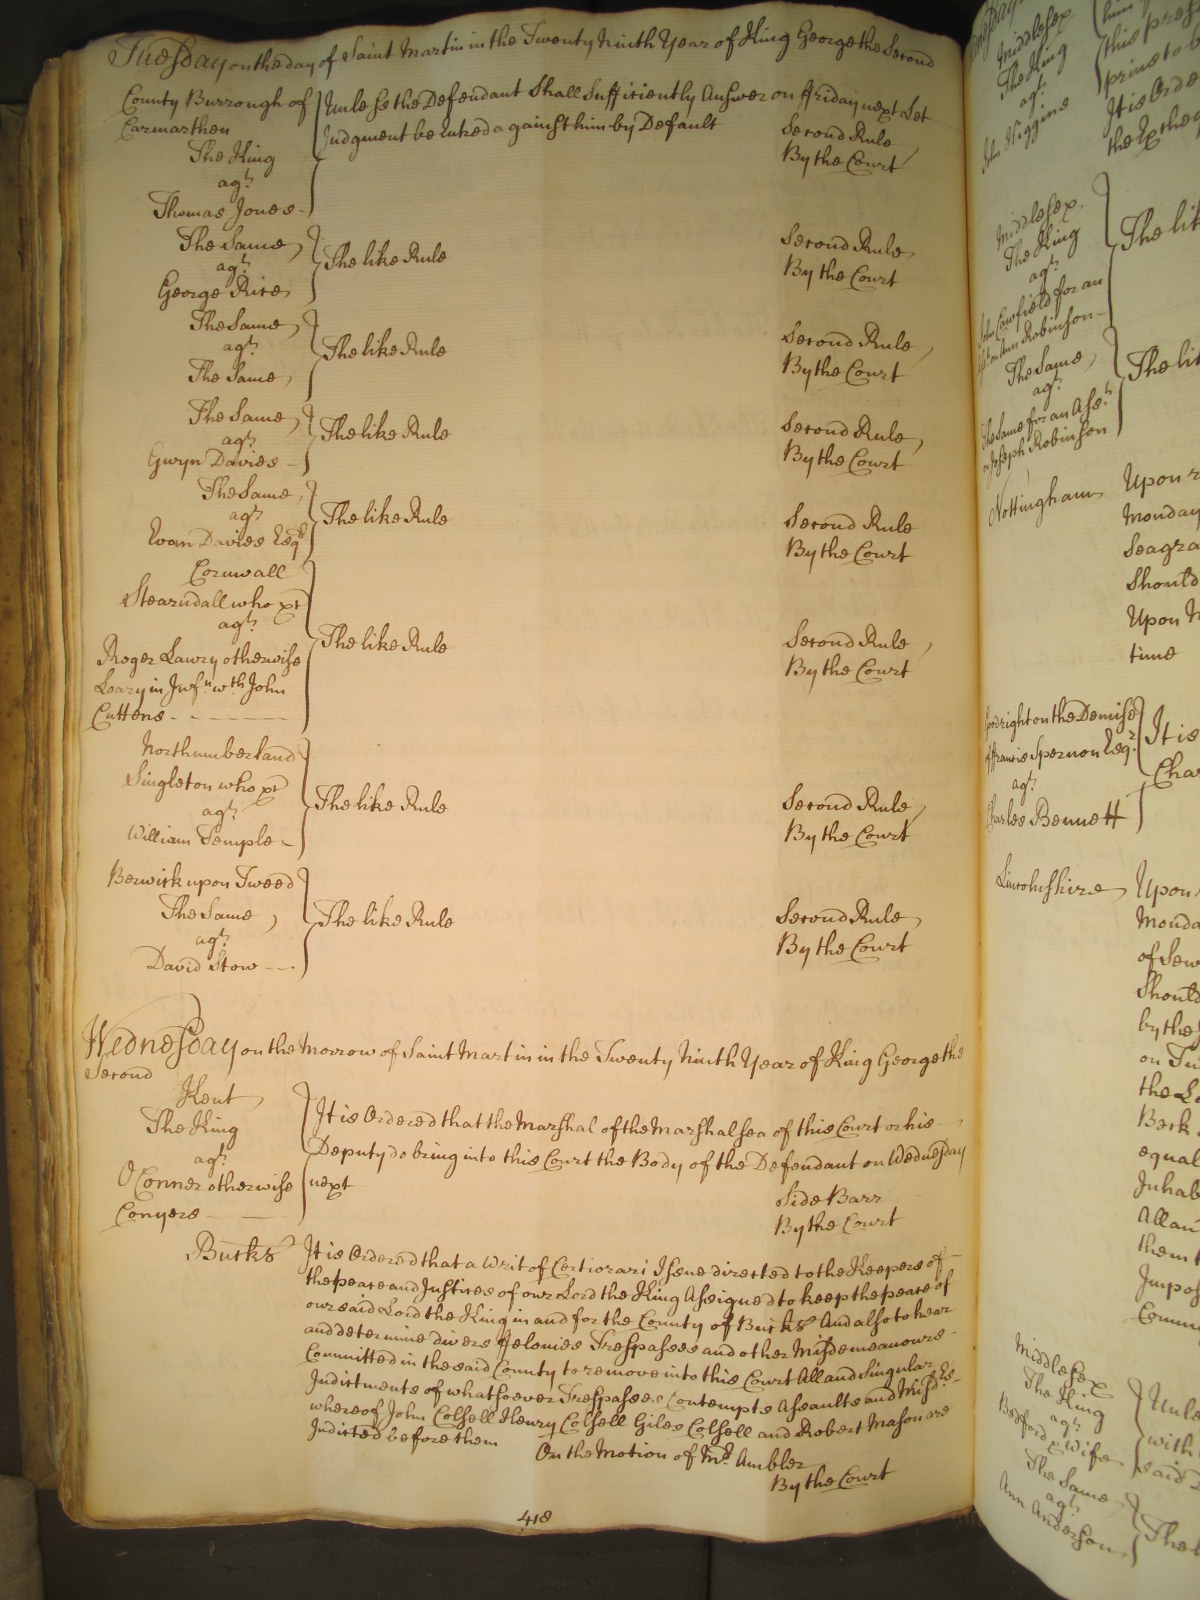 Tuesday on the day of Saint Martin in the Twenty Ninth Year of King George the Second
County Burrough of
Carmarthen
The King
agt
Thomas Jones
Unless the Defendant Shall Sufficiently Answer on Friday next Let
Judgment be entred against him by Default
Second Rule
By the Court
The Same
agt
George Rice
The like Rule
Second Rule
By the Court
The Same
agt
The Same
The like Rule
Second Rule
By the Court
The Same
agt
Gwyn Davies
The like Rule
Second Rule
By the Court
The Same
agt
Evan Davies Esqr
The like Rule
Second Rule
By the Court
Cornwall
Stearndall who pr
agt
Roger Lawry otherwise
Loary in Infn wth John
Cuttens
The like Rule
Second Rule
By the Court
Northumberland
Singleton who pr
agt
William Temple
The like Rule
Second Rule
By the Court
Berwick upon Tweed
The Same
agt
David Stow
The like Rule
Second Rule
By the Court
Wednesday on the Morrow of Saint Martin in the Twenty Ninth Year of King George the
Second
Kent
The King
agt
O'Conner otherwise
Conyers
It is Ordered that the Marshal of the Marshalsea of this Court or his
Deputy do bring into this Court the Body of the Defendant on Wednesday
next
Side Barr
By the Court
Bucks
It is Ordered that a Writ of Certiorari Issue directed to the Keepers of
the peace and Justices of our Lord the King Assigned to keep the peace of
our said Lord the King in and for the County of Bucks And also to hear
and determine divers Felonies Trespasses and other Misdemeanours
Committed in the said County to remove into this Court All and Singular
Indictments of whatsoever Trespasses Contempts Assaults and Misdes
whereof John Colsell Henry Colsell Giles Colsell and Robert Mason are
Indicted before them
On the Motion of Mr Ambler
By the Court
418
Middlesex
The King
agt
John Higgins
It is Orde
Middlesex
The King
agt
The Same
agt
The Same for an Asst
on Joseph Robinson
Nottingham
Upon r
Monday
Seagra
Should
Upon N
time
Goodright on the Demise
agt
Charles Bennett
It is
Cha
Lincolnshire
Upon
Monda
of Sew
Should
by the
on Tu
the Lo
Beck
equal
Inhab
Allan
them
Impos
Middlesex
The King
agt
Bedford & Wife
Unle
with
said
The Same
agt
Ann Anderson
The l